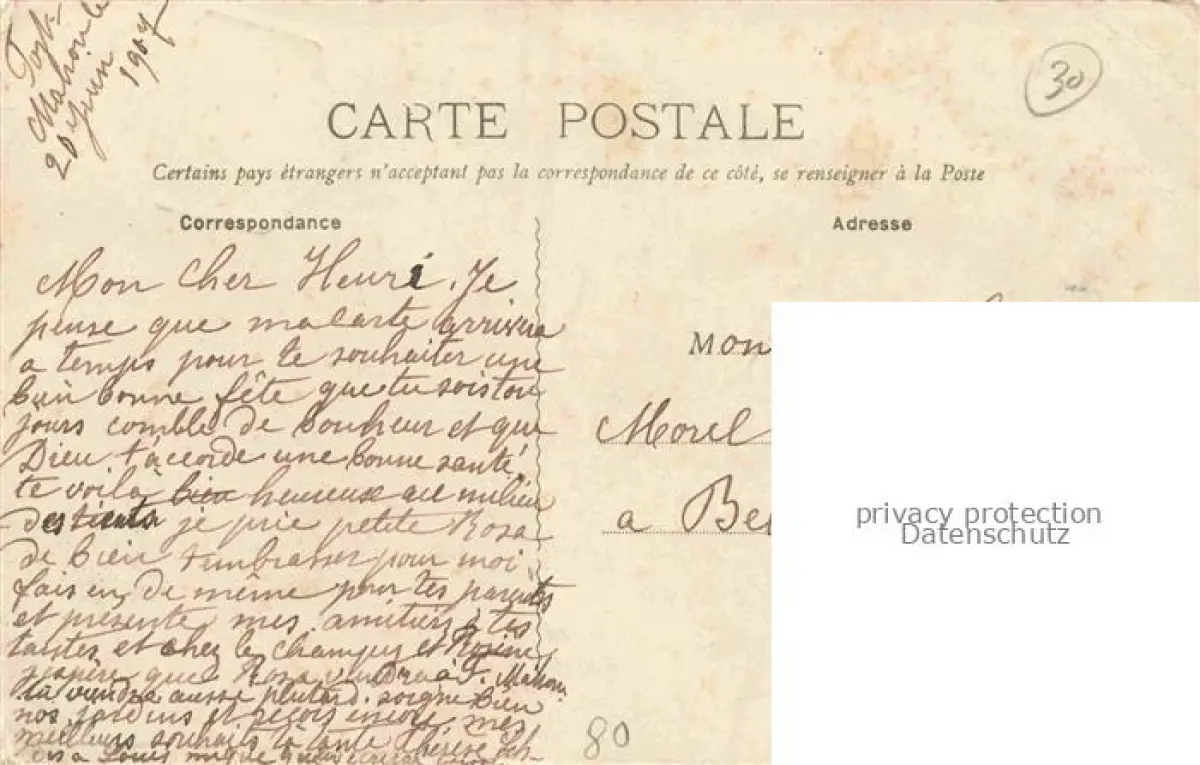 Fort-
Mahon le
20 Juin 1907
30
CARTE POSTALE
Certains pays étrangers n'acceptent pas la correspondance de ce côté, se renseigner à la Poste
Correspondance
Adresse
Mon cher Henri. Je
pense que ma carte arrivera
a temps pour te souhaiter une
bien bonne fête que tu sois tou
jours comblé de bonheur et que
Dieu t'accorde une bonne santé
te voilà bien heureuse au milieu
des tiens je prie petite Rosa
de bien t'embrasser pour moi
fais en de même pour tes parents
et présente mes amitiés à tes
tantes et chez le champuy et Rosine
j'espère que Rosa viendra à F. Mahon
tu viendra aussi plutard. soigne bien
nos jardins et reçois encore mes
meilleurs souhaits ta tante Thérèse
Louis
Mon
Morel
a Be
privacy protection
Datenschutz
80